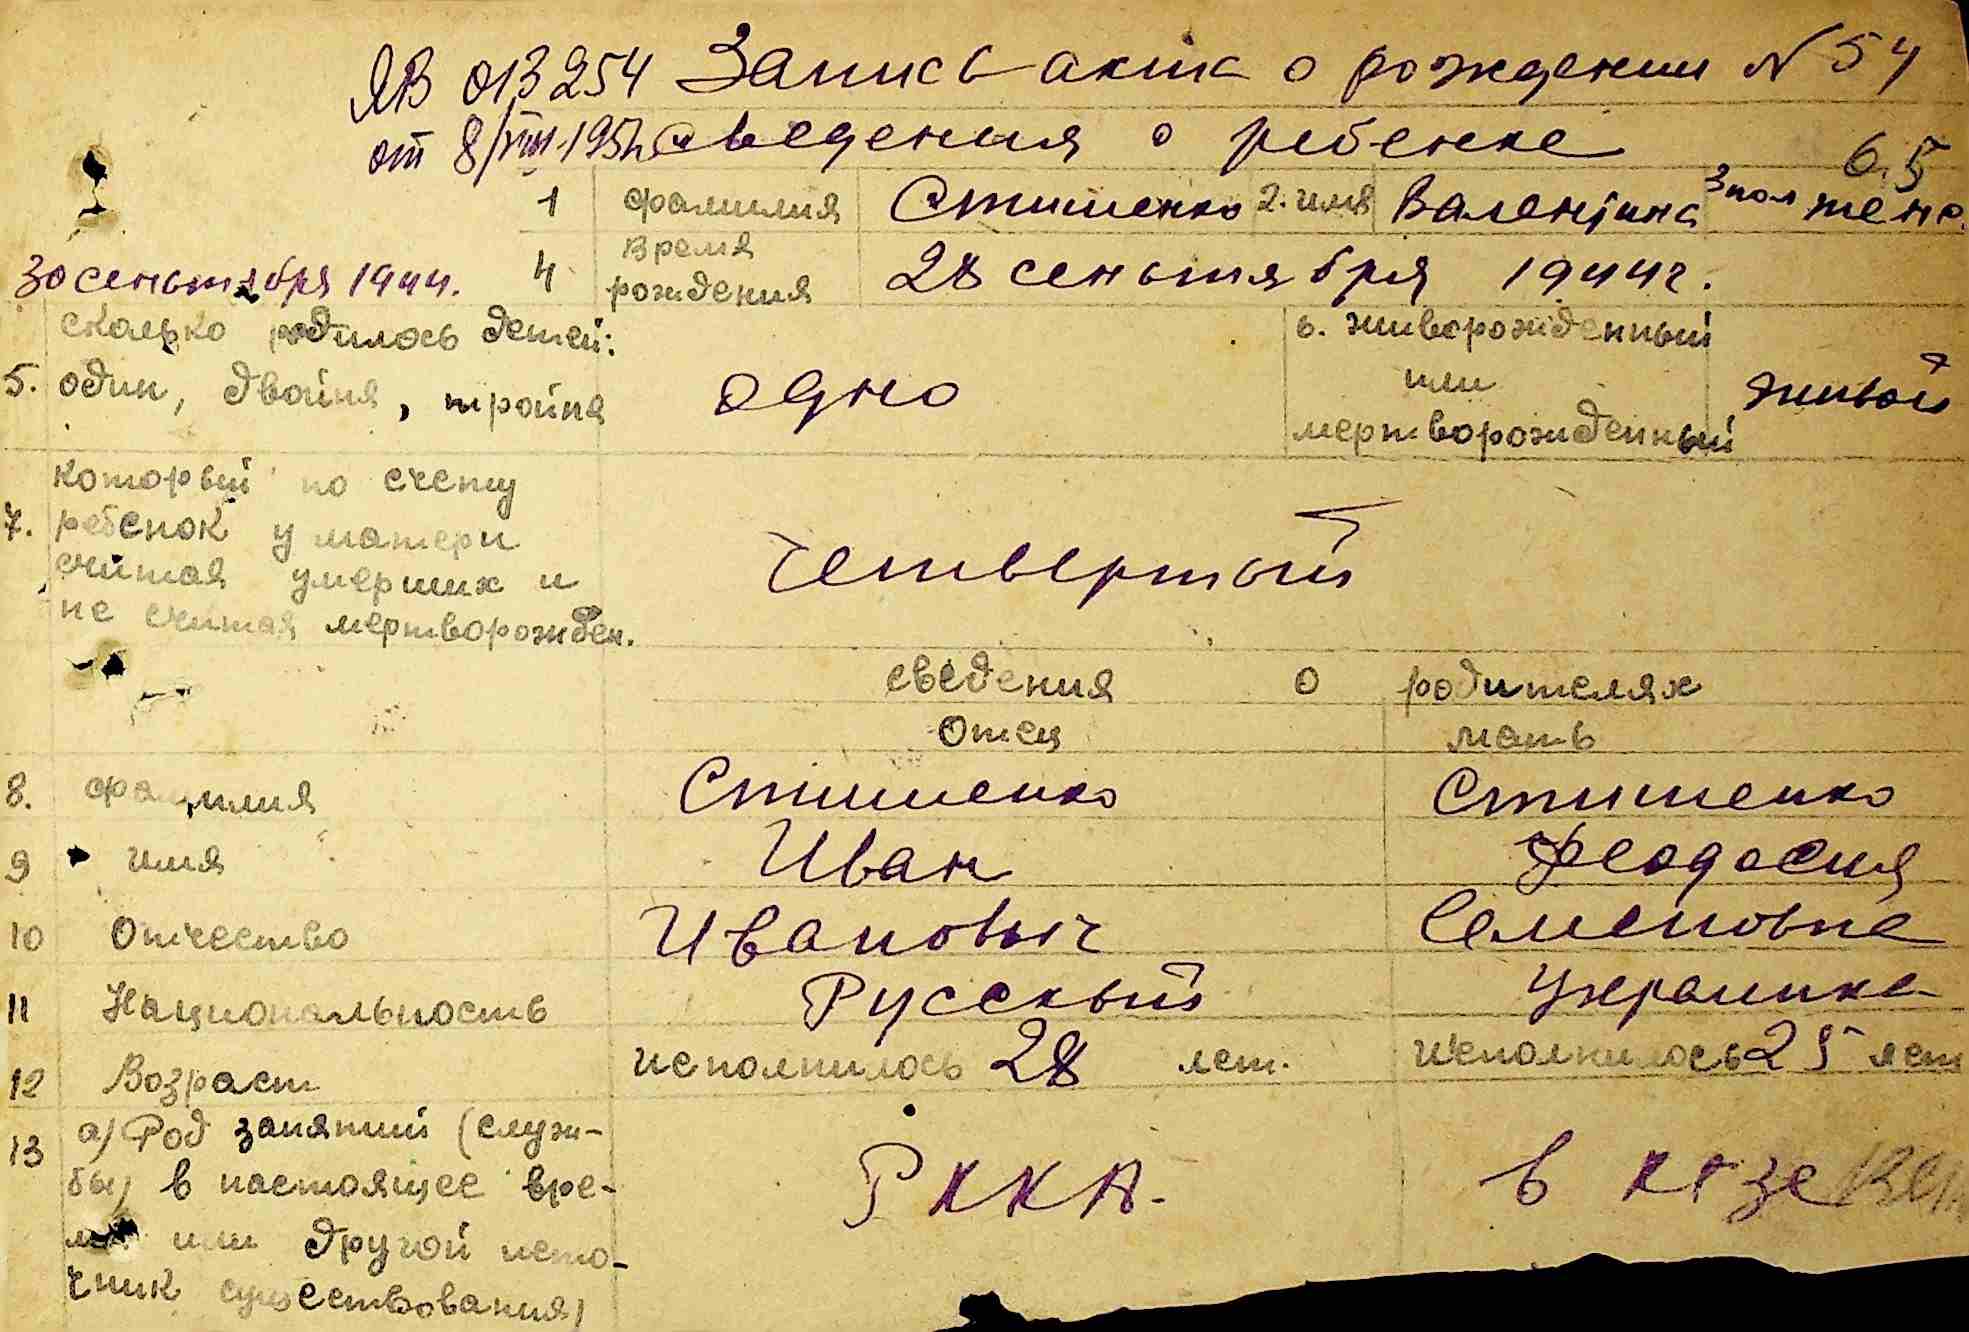 ЯВ 013254 Запись акта о рождении N 54
от 8/VIII-195 Сведения о ребенке 65
1 фамилия Стишенко 2. имя Валентина 3 пол жен.
30 сентября 1944. 4 время рождения 28 сентября 1944г.
сколько родилось детей:
5. один, двойня, тройня одно 6. живорожденный или мертворожденный живой
который по счету
7. ребенок у матери
считая умерших и четвертый
не считая мертворожден.
сведения о родителях
отец мать
8. фамилия Стишенко Стишенко
9 имя Иван Феодосия
10 Отчество Иванович Семеновна
11 Национальность Русский Украинка
12 Возраст исполнилось 28 лет. исполнилось 25 лет
13 а) Род занятий (служ-
бы) в настоящее вре- РККА. в
мя или другой исто-
чник существования)